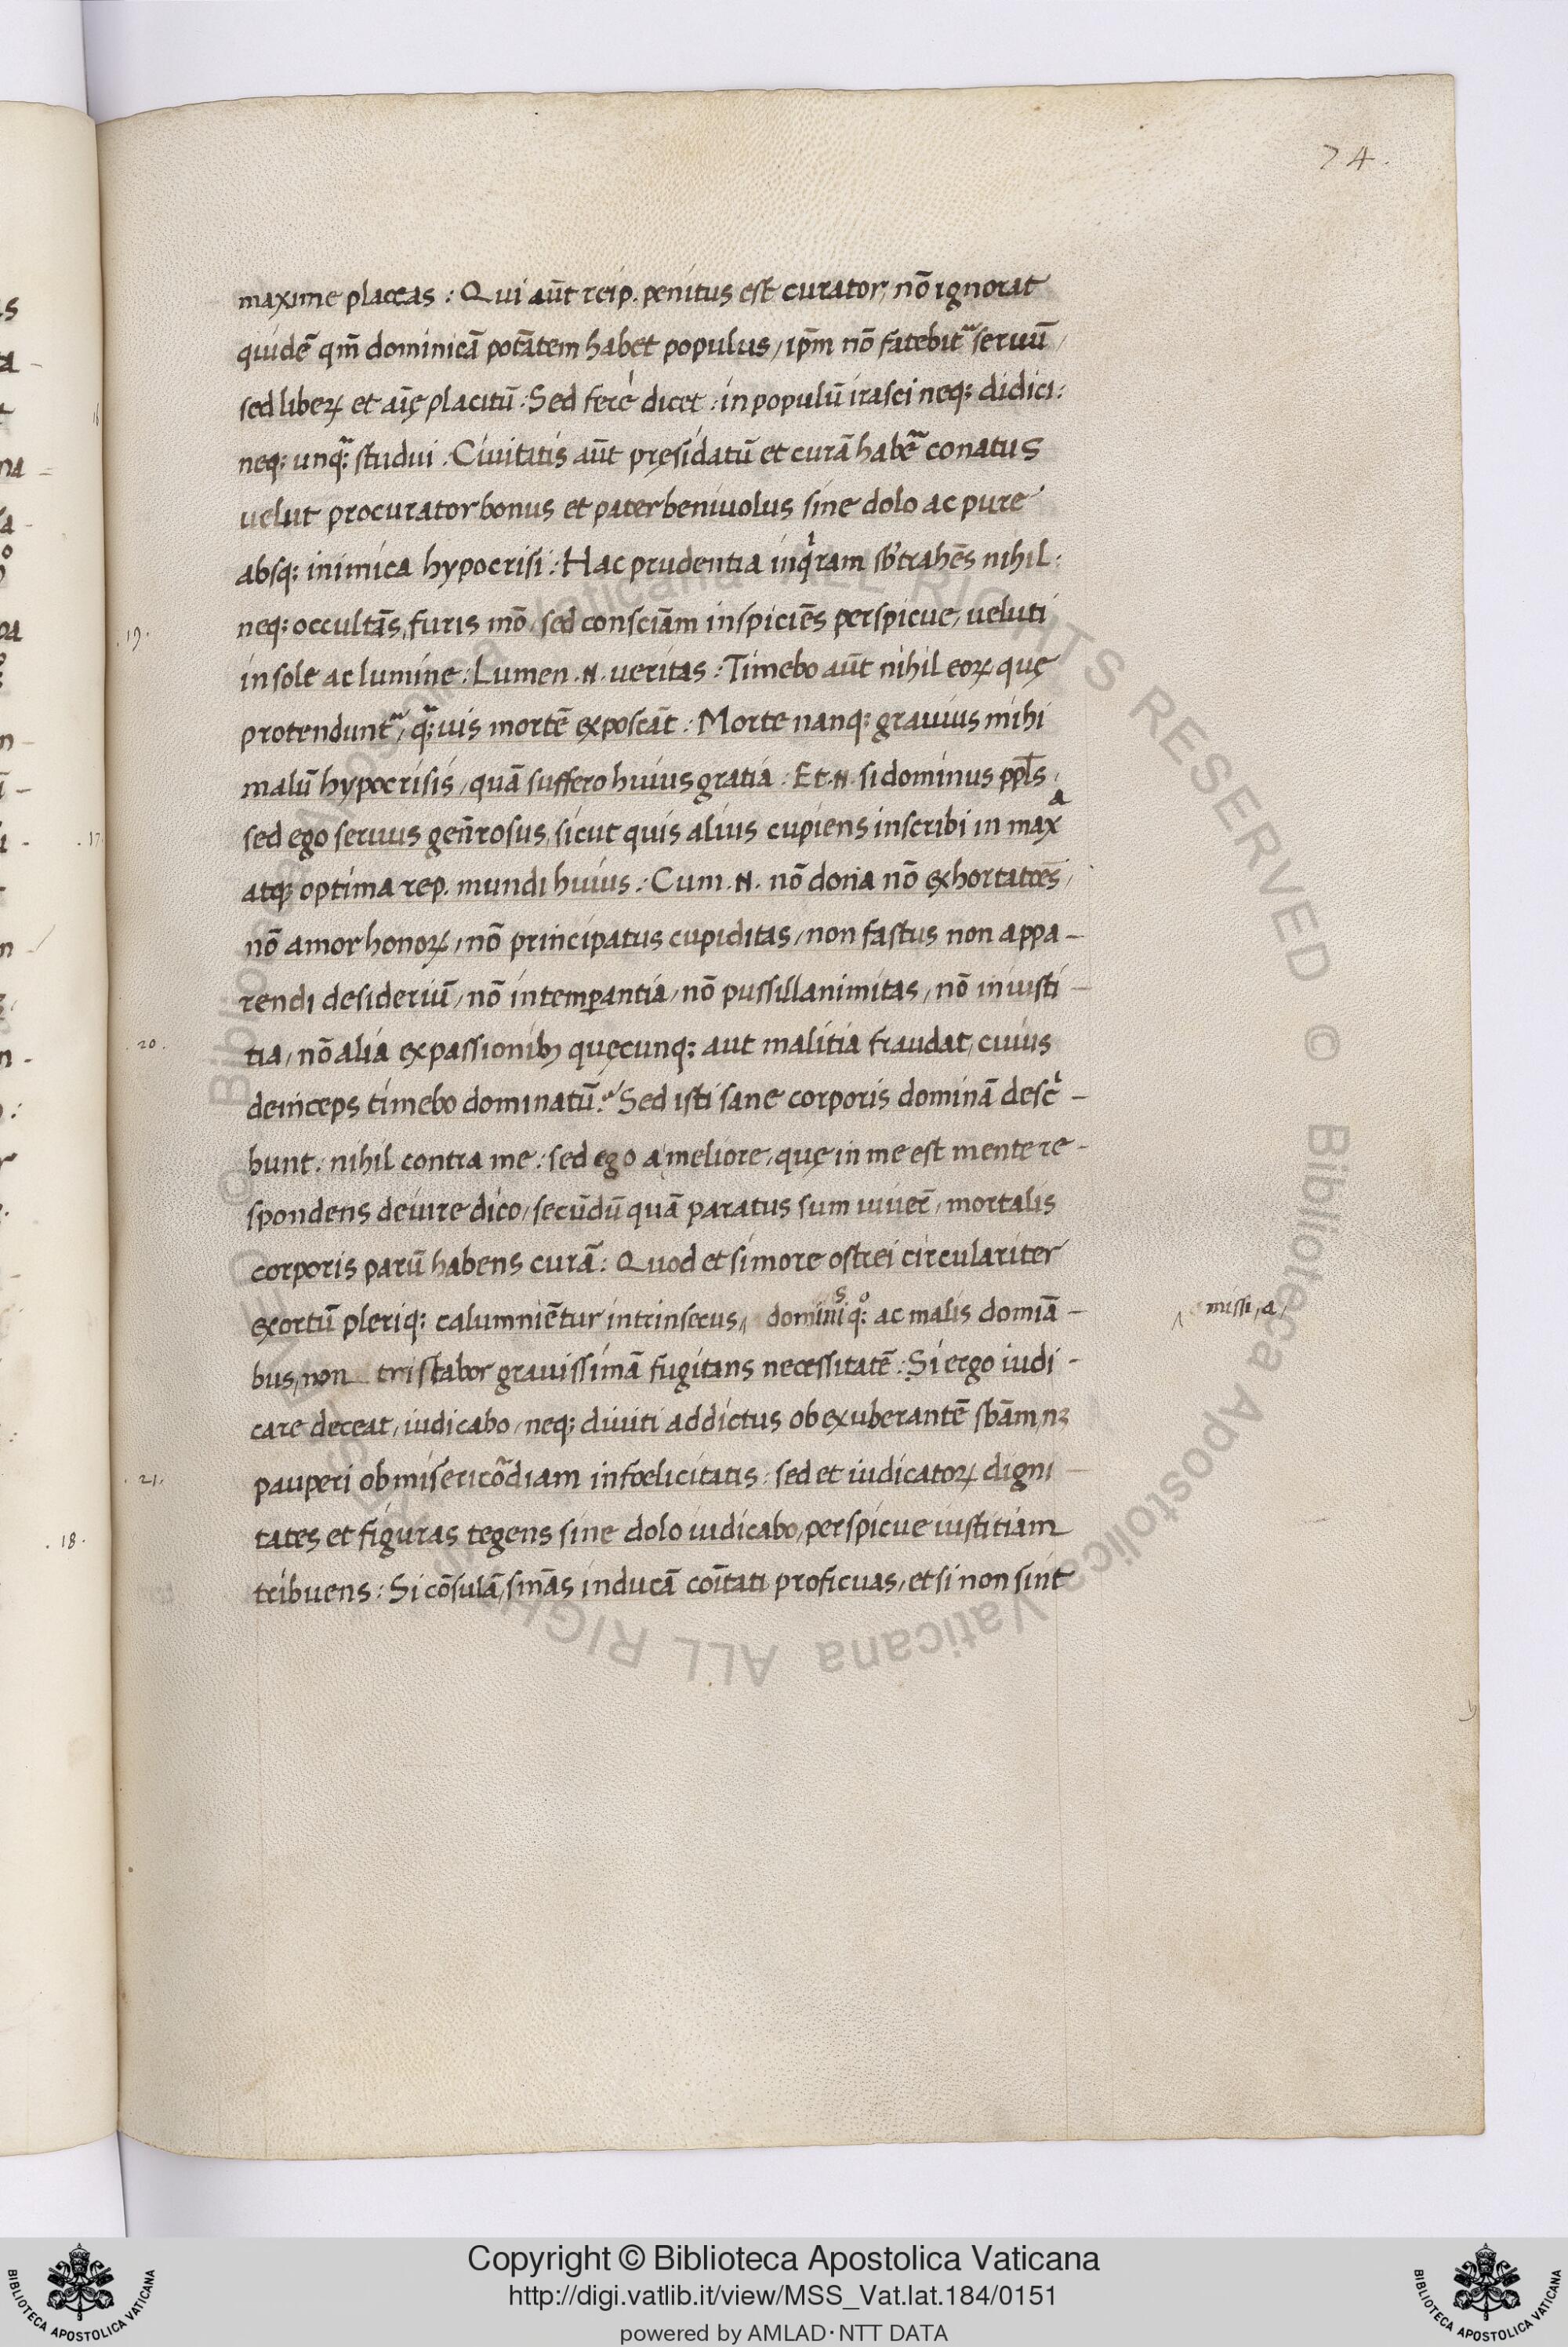 74.
maxime placeas : Qui aūt reip. penitus est curator, nō ignorat
quidē qm̄ dominicā potātem habet populus, ip̄m nō fatebit᷑ seruū,
sed liberꝝ et aīę placitū : Sed feré dicet : in populū irasci neq; didici :
neq; unq̃; studui . Civitatis aūt pręsidatū et curā habē᷑ conatus
velut procurator bonus et pater benivolus sine dolo ac pure
absq; inimica hypocrisi : Hac prudentia inqͥram sb̓trahēs nihil :
19.
neq; occultās, furis mō, sed consciām inspiciēs perspicue, veluti
in sole ac lumine : Lumen .N. veritas : Timebo aūt nihil eoꝝ quę
protendunt᷑, q̃;vis mortē exposcāt : Morte nanq; gravius mihi
malū hypocrisis, quā suffero huius gratia : Et .N. si dominus ppl̄s,
sed ego servus gen̄rosus, sicut quis alius cupiens inscribi in maxᵃ
atq; optima rep. mundi huius : Cum .N. nō dona nō exhortatōes,
nō amor honoꝝ, nō principatus cupiditas, non fastus non appa -
rendi desideriū, nō intemꝑantia, nō pussillanimitas, nō iniusti -
20.
tia, nō alia ex passionibꝫ quęcunq; aut malitia fraudat, cuius
deinceps timebo dominatū. Sed isti sane corporis dominā descͥ -
bunt : nihil contra me : sed ego a meliore, quę in me est mente re -
spondens deiure dico, secūdū quā paratus sum viver̄, mortalis
corporis parū habens curā : Quod et si more ostrei circulariter
exortū pleriq; calumniētur intrinsecus, dominiˢ q;ͦ ac malis domiā -
missi, a,
bus, non tristabor gravissimā fugitans necessitatē : Si ergo iudi -
care deceat, iudicabo, neq; diviti addictus ob exuberantē sbām, nꝫ
21.
pauperi ob misericōdiam infoelicitatis : sed et iudicatoꝝ digni -
tates et figuras tegens sine dolo iudicabo, perspicue iustitiam
18.
tribuens : Si cōsulā, sm̄ās inducā coītati proficuas, et si non sint
Copyright © Biblioteca Apostolica Vaticana
http://digi.vatlib.it/view/MSS_Vat.lat.184/0151
powered by AMLAD·NTT DATA